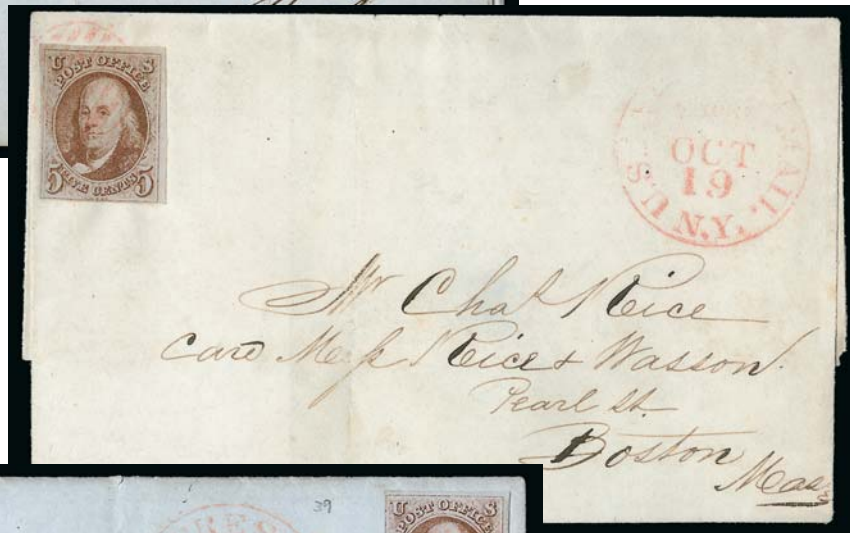 U S
POST OFFICE
5 FIVE CENTS 5
MAIL
OCT
19
U.S.
N.Y.
Mr Chas Reice
Care Mess Reice & Wasson
Pearl St.
Boston
Mass
39
RES
U S
POST OFFICE